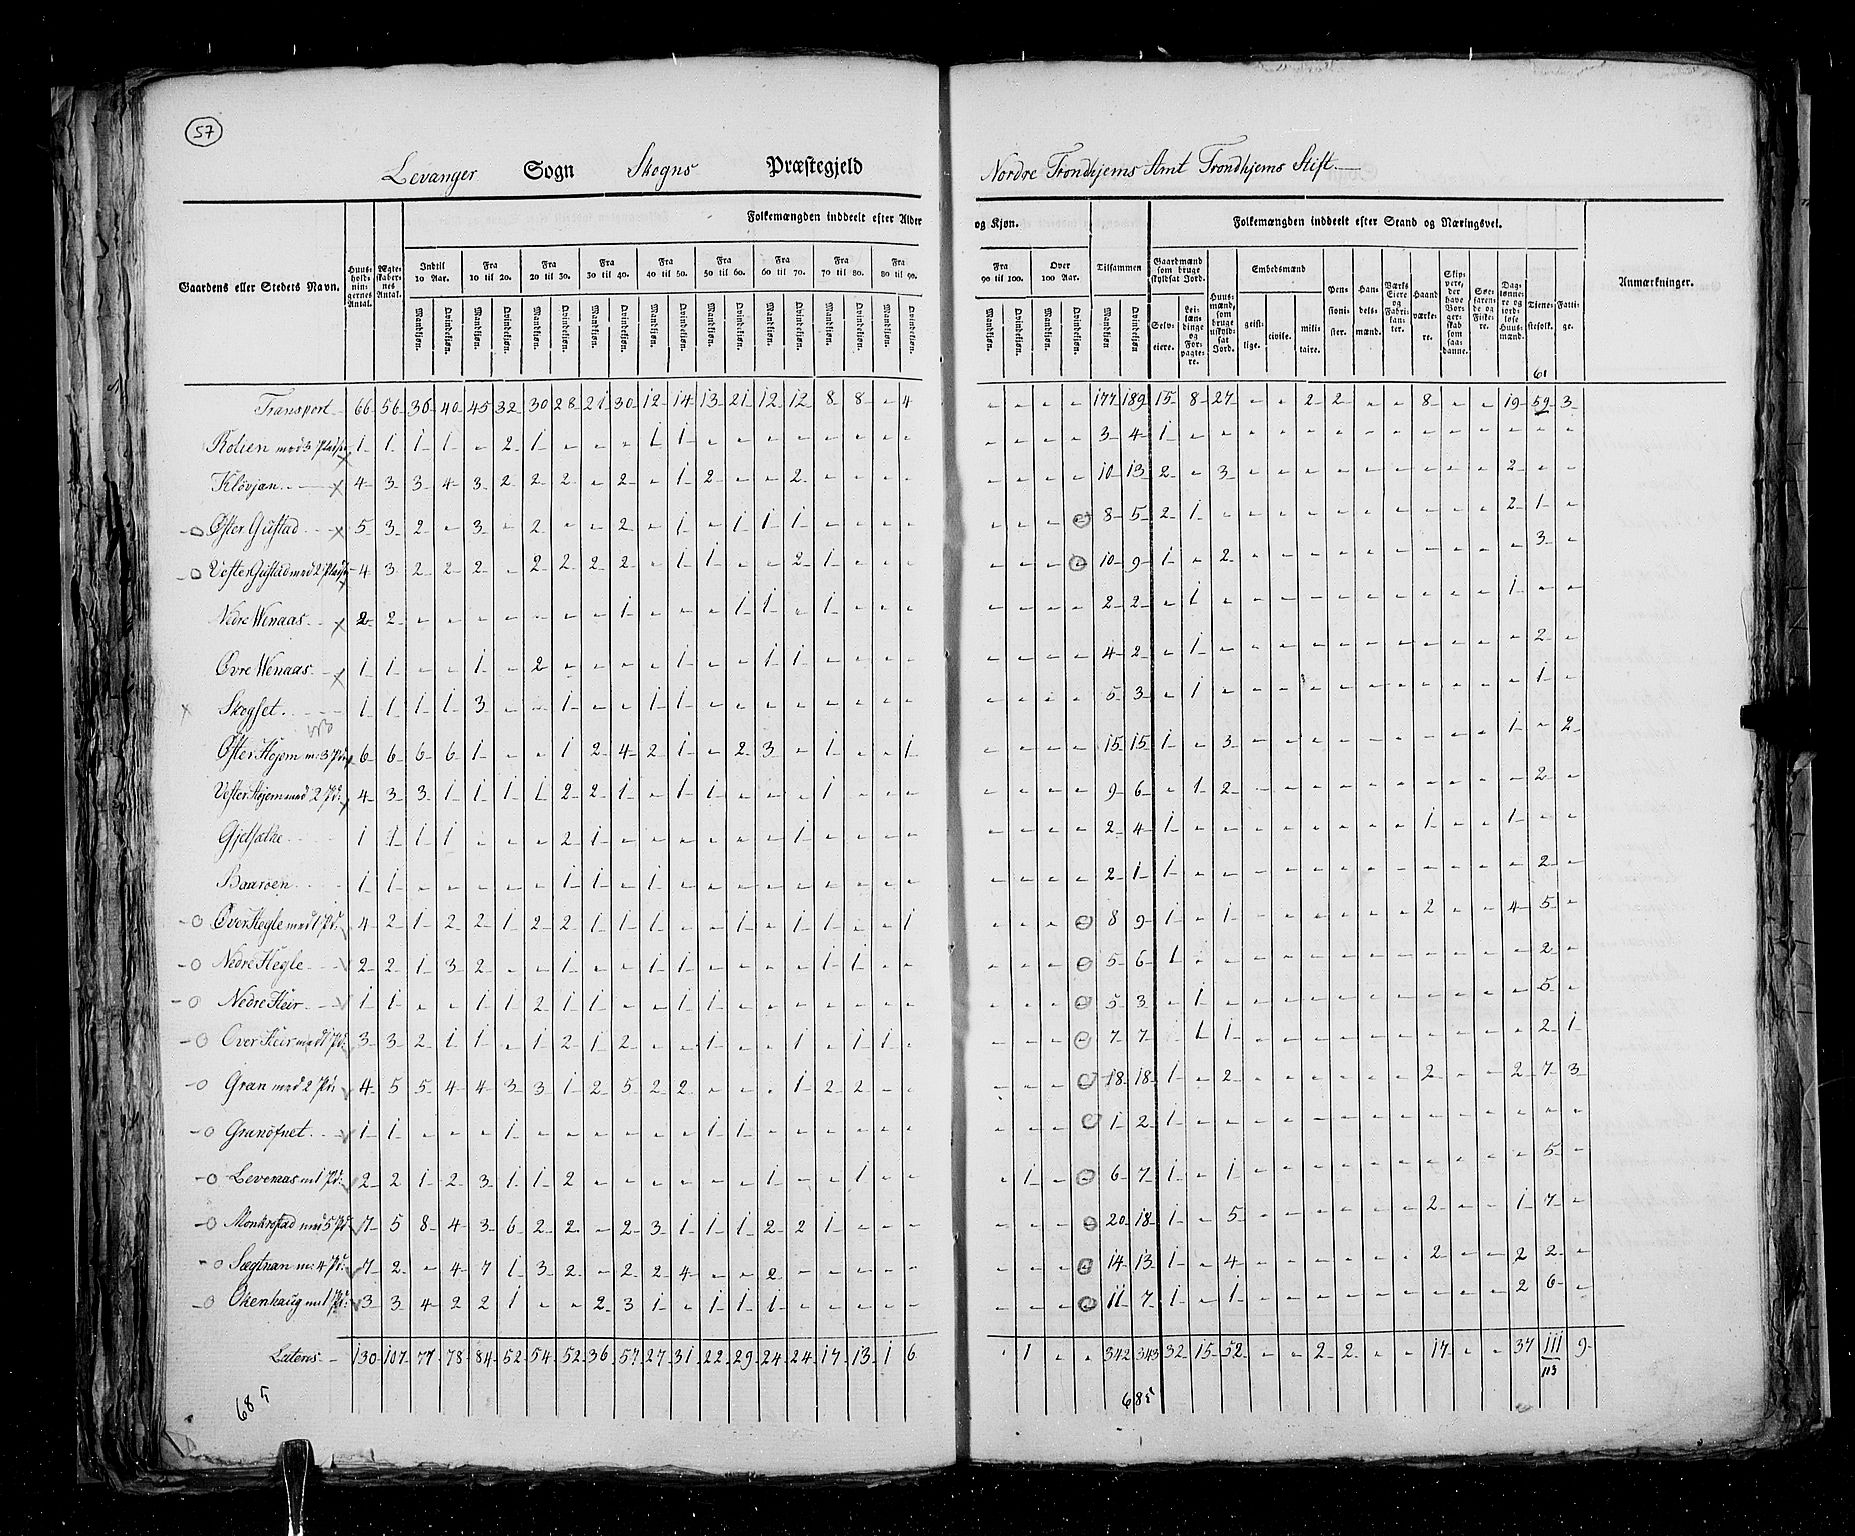 57
Levanger Sogn Skogns Præstegjeld
Nordre Trondhjems Amt Trondhjems Stift.
Gaardens eller Stedets Navn.
Huusholdningernes Antal.
Ægteskabernes Antal.
Folkemængden inddeelt efter Alder og Kjøn.
Indtil 10 Aar.
Fra 10 til 20.
Fra 20 til 30.
Fra 30 til 40.
Fra 40 til 50.
Fra 50 til 60.
Fra 60 til 70.
Fra 70 til 80.
Fra 80 til 90.
Fra 90 til 100.
Over 100 Aar.
Tilsammen
Mandkjøn. Qvindekjøn.
Folkemængden inddeelt efter Stand og Næringsvei.
Gaardmænd som bruge skyldsat Jord.
Selveiere.
Leilændinge og Forpagtere.
Huusmænd, som bruge uskyldsat Jord.
Embedsmænd
geistlige.
civile.
militaire.
Pensionister.
Handelsmænd.
Værks Eiere og Fabrikanter.
Haandværkere.
Skippere, der have Borgerskab som saadanne.
Søefarende og Fiskere.
Daglønnere og jordløse Huusmænd.
Tienestefolk.
Fattige.
Anmærkninger.
61
Transport 66 56 36 40 45 32 30 28 21 30 12 14 13 21 12 12 8 8 - 4 - - - - 177 189 15 8 27 - - 2 2 - - 8 - - 19 59 3
Rolien med 3 1 1 1 1 - 2 1 - - - 1 1 - - - - - - - - - - - - 3 4 1 - - - - - - - - - - - - - -
Kløvjan 4 3 3 4 3 2 2 2 - 2 - 1 2 - - 2 - - - - - - - - 10 13 2 - 3 - - - - - - - - - 2 - -
Øster Gustad 5 3 2 - 3 - 2 - - 2 - 1 - 1 1 1 - - - - - - - - 8 5 2 1 - - - - - - - - - - 2 1 -
Vester Gustad med 2 4 3 2 2 2 - 2 2 2 2 - 1 1 - - 2 1 - - - - - - - 10 9 1 - 2 - - - - - - - - - - 3 -
Nedre Wenaas 2 2 - - - - - - - 1 - - - 1 1 - 1 - - - - - - - 2 2 - 1 - - - - - - - - - - 1 - -
Øvre Wenaas 1 1 - - 1 - 2 - - - - 1 - - 1 1 - - - - - - - - 4 2 - 1 - - - - - - - - - - - 2 -
Skogset 1 1 1 1 3 - - 1 - - 1 1 - - - - - - - - - - - - 5 3 - 1 - - - - - - - - - - - 1 -
Øster Hojem m: 3 6 6 6 6 1 - - 1 2 4 2 1 - 2 3 - 1 - - 1 - - - - 15 15 1 - 3 - - - - - - - - - 1 - 2
Vester Hojem med 2 Pd: 4 3 3 1 1 1 1 2 2 1 - 1 1 - - - 1 - - - - - - - 9 6 - 1 2 - - - - - - - - - - 2 -
1 1 1 1 - - - 2 1 - - - - - - 1 - - - - - - - - 2 4 1 - - - - - - - - 1 - - 1 - -
Baaroen 1 1 - - - - - 1 1 - 1 - - - - - - - - - - - - - 2 1 1 - - - - - - - - - - - - 2 -
Øver Hegle med 1 Pd: 4 2 1 2 2 1 2 2 1 1 1 - - 1 - 1 1 - - 1 - - - - 8 9 1 - 1 - - - - - - 2 - - 4 5 -
Nedre Hegle 2 2 1 3 2 - - 1 - - 1 1 - - - - 1 1 - - - - - - 5 6 1 - - - - - - - - - - - - 2 -
Nedre Heir 1 1 - - 1 1 2 1 1 - - 1 1 - - - - - - - - - - - 5 3 - 1 - - - - - - - - - - - 5 -
Over Heir med 1 Pd: 3 3 2 1 1 - 1 2 1 2 - - 1 - - 1 - 1 1 - - - - - 7 7 - 1 1 - - - - - - - - - - 2 1
Gran med 2 Pd: 4 5 5 4 4 3 3 1 2 5 2 2 - - - 1 2 2 - - - - - - 18 18 1 - 2 - - - - - - 2 - - 2 7 3
Granofnet 1 1 - - - 1 - - - - - - 1 1 - - - - - - - - - - 1 2 1 - - - - - - - - - - - - - -
Levenaas m 1 Pd: 2 2 1 2 3 1 1 2 - - - - - - 1 - - 1 - - - 1 - - 6 7 1 - 1 - - - - - - - - - - 5 -
Monkrostad med 5 Pd 7 5 8 4 3 6 2 2 - 2 3 1 1 1 2 2 1 - - - - - - - 20 18 1 - 5 - - - - - - 2 - - 1 7 -
Sægtnan m: 4 Pd: 7 2 - 4 7 1 3 2 - 2 2 4 - - 2 - - - - - - - - - 14 13 1 - 4 - - - - - - 2 - - 2 2 -
Okenhaug m 1 Pd: 3 3 4 2 2 1 - - 2 3 1 - 1 1 1 - - - - - - - - - 11 7 1 - 1 - - - - - - - - - 2 6 -
Lateris 130 107 77 78 84 52 54 52 36 57 27 31 22 29 24 24 17 13 1 6 - 1 - - 342 343 32 15 52 - - 2 2 - - 17 - - 37 111 9
113
685
685